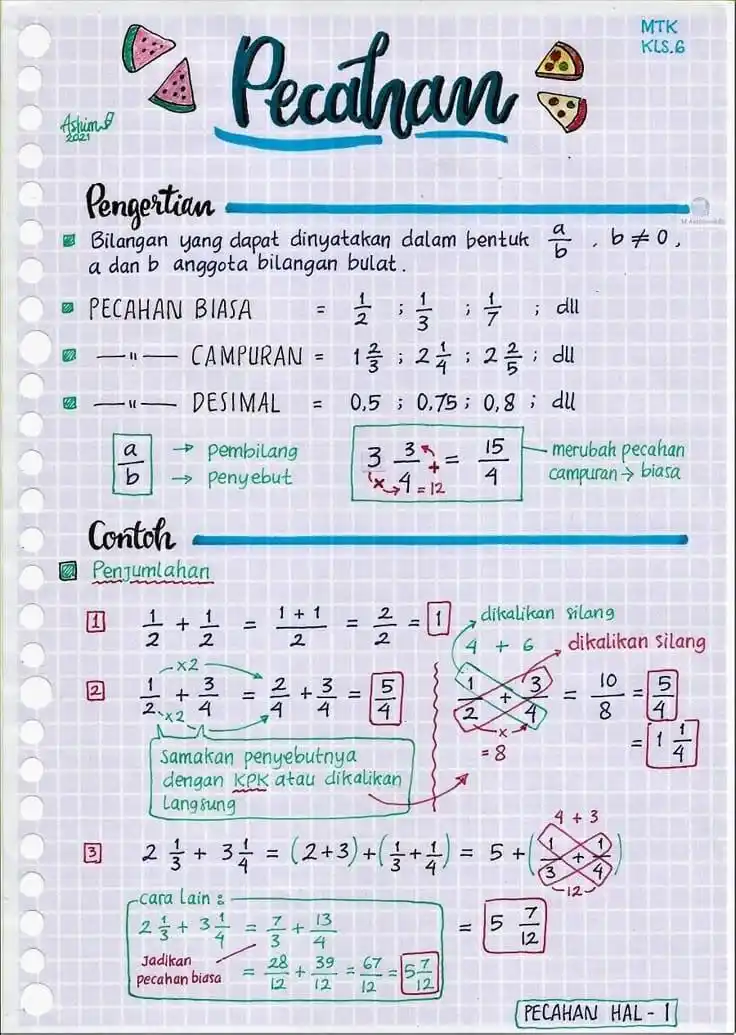 MTK
KLS.6
Pecahan
Ashim
2021
Pengertian
Bilangan yang dapat dinyatakan dalam bentuk a/b , b ≠ 0 ,
a dan b anggota bilangan bulat.
PECAHAN BIASA = 1/2 ; 1/3 ; 1/7 ; dll
—"— CAMPURAN = 1 2/3 ; 2 1/4 ; 2 2/5 ; dll
—"— DESIMAL = 0,5 ; 0,75 ; 0,8 ; dll
a/b → pembilang
→ penyebut
3 3/4 = 15/4
x + = 12
merubah pecahan
campuran → biasa
Contoh
Penjumlahan
1 1/2 + 1/2 = 1 + 1/2 = 2/2 = 1
2 1/2 + 3/4 = 2/4 + 3/4 = 5/4
x2
x2
Samakan penyebutnya
dengan KPK atau dikalikan
langsung
dikalikan silang
4 + 6 dikalikan silang
1/2 + 3/4 = 10/8 = 5/4
x
= 8
= 1 1/4
3 2 1/3 + 3 1/4 = (2+3) + (1/3 + 1/4) = 5 + (1/3 + 1/4)
4 + 3
12
= 5 7/12
cara lain :
2 1/3 + 3 1/4 = 7/3 + 13/4
Jadikan
pecahan biasa
= 28/12 + 39/12 = 67/12 = 5 7/12
PECAHAN HAL - 1